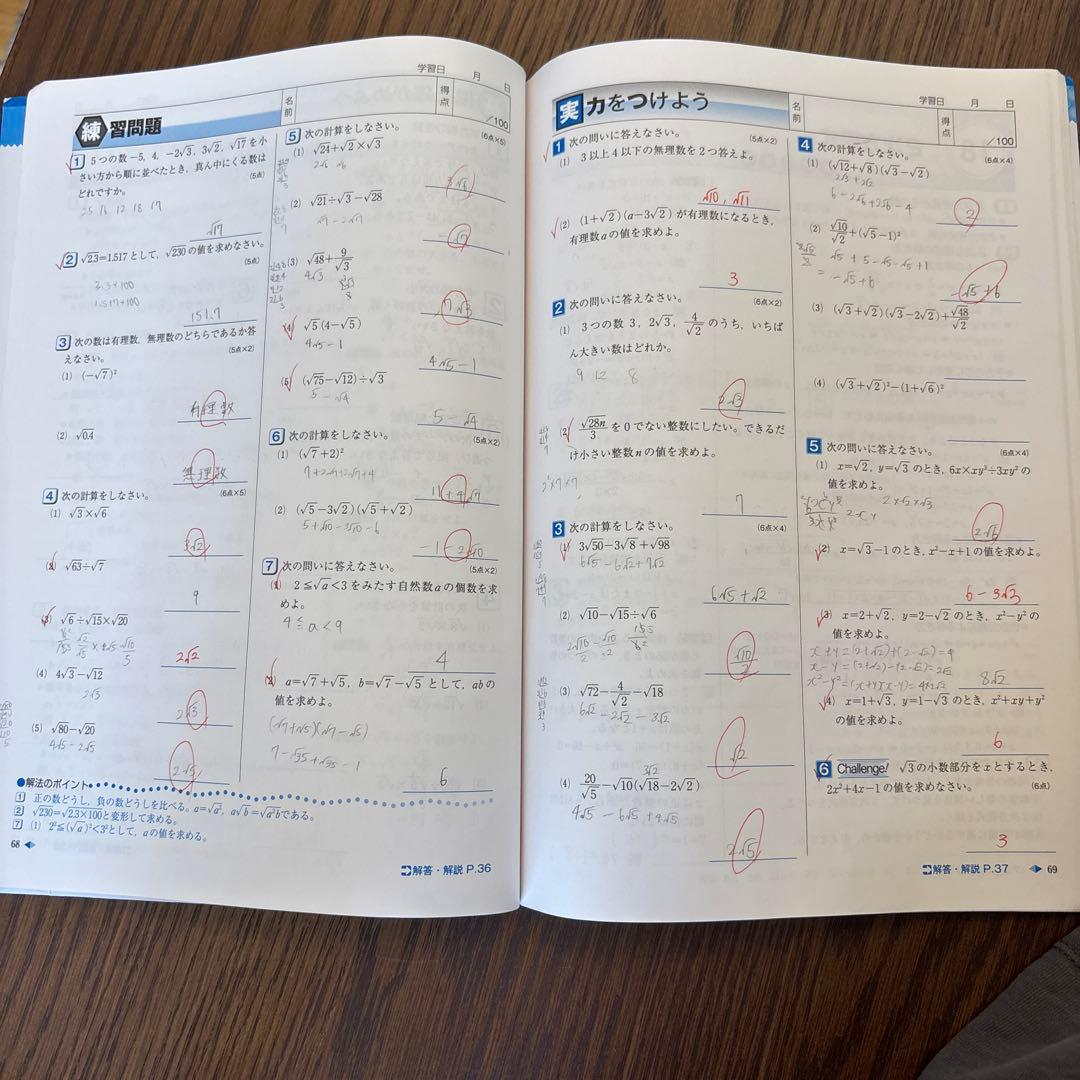 学習日 月 日
練習問題
名前
得点
/100
1 5つの数−5, 4, −2√3, 3√2, √17を小
さい方から順に並べたとき, 真ん中にくる数は
どれですか。 (5点)
25 16 12 18 17
√17
2 √2.3=1.517として, √230の値を求めなさい。
(5点)
1.517×100
151.7
3 次の数は有理数, 無理数のどちらであるか答
えなさい。 (5点×2)
(1) (−√7)²
有理数
(2) √0.4
無理数
4 次の計算をしなさい。 (6点×5)
(1) √3×√6
3√2
(2) √63÷√7
9
(3) √6÷√15×√20
2√2
(4) 4√3−√12
2√3
2√3
(5) √80−√20
4√5−2√5
2√5
●解法のポイント
1 正の数どうし, 負の数どうしを比べる。a=√a², a√b=√a²bである。
2 √230=√2.3×100と変形して求める。
7 (1) 2²≦(√a)²<3²として, aの値を求める。
68
5 次の計算をしなさい。 (6点×5)
(1) √24+√2×√3
2√6 √6
3√6
(2) √21÷√3−√28
√7−2√7
−√7
(3) √48+9/√3
4√3
7√3
(4) √5(4−√5)
4√5−1
4√5−1
(5) (√75−√12)÷√3
5−√4
5−√4
6 次の計算をしなさい。 (5点×2)
(1) (√7+2)²
7+2√7+2√7+4
11+4√7
(2) (√5−3√2)(√5+√2)
5+√10−3√10−6
−1−2√10
7 次の問いに答えなさい。 (5点×2)
(1) 2≦√a<3をみたす自然数aの個数を求
めよ。
4≦a<9
4
(2) a=√7+√5, b=√7−√5として, abの
値を求めよ。
(√7+√5)(√7−√5)
7−√35+√35−1
6
解答・解説 P.36
学習日 月 日
実力をつけよう
名前
得点
/100
1 次の問いに答えなさい。 (5点×2)
(1) 3以上4以下の無理数を2つ答えよ。
√10, √11
(2) (1+√2)(a−3√2)が有理数になるとき,
有理数aの値を求めよ。
3
2 次の問いに答えなさい。 (6点×2)
(1) 3つの数3, 2√3, 4/√2のうち, いちば
ん大きい数はどれか。
9 12 8
2√3
(2) √28n/3を0でない整数にしたい。できるだ
け小さい整数nの値を求めよ。
2²×7×7
7
3 次の計算をしなさい。 (6点×4)
(1) 3√50−3√8+√98
6√5−6√2+7√2
6√5+√2
(2) √10−√15÷√6
√10/2
(3) √72−4/√2−√18
6√2−2√2−3√2
√2
(4) 20/√5−√10(√18−2√2)
3√2
4√5−6√5+4√5
2√5
4 次の計算をしなさい。 (6点×4)
(1) (√12+√8)(√3−√2)
2√3+2√2
6−2√6+2√6−4
2
(2) √10/√2+(√5−1)²
√5+5−√5−√5+1
=−√5+6
−√5+6
(3) (√3+√2)(√3−2√2)+√48/√2
(4) (√3+√2)²−(1+√6)²
5 次の問いに答えなさい。 (6点×4)
(1) x=√2, y=√3のとき, 6x×xy²÷3xy²の
値を求めよ。
2×√2×√3
2√6
(2) x=√3−1のとき, x²−x+1の値を求めよ。
6−3√3
(3) x=2+√2, y=2−√2のとき, x²−y²の
値を求めよ。
x+y=(2+√2)+(2−√2)=4
x−y=(2+√2)−(2−√2)=2√2
x²−y²=(x+y)(x−y)=4×2√2
8√2
(4) x=1+√3, y=1−√3のとき, x²+xy+y²
の値を求めよ。
6
6 Challenge! √3の小数部分をxとするとき,
2x²+4x−1の値を求めなさい。 (6点)
3
解答・解説 P.37
69